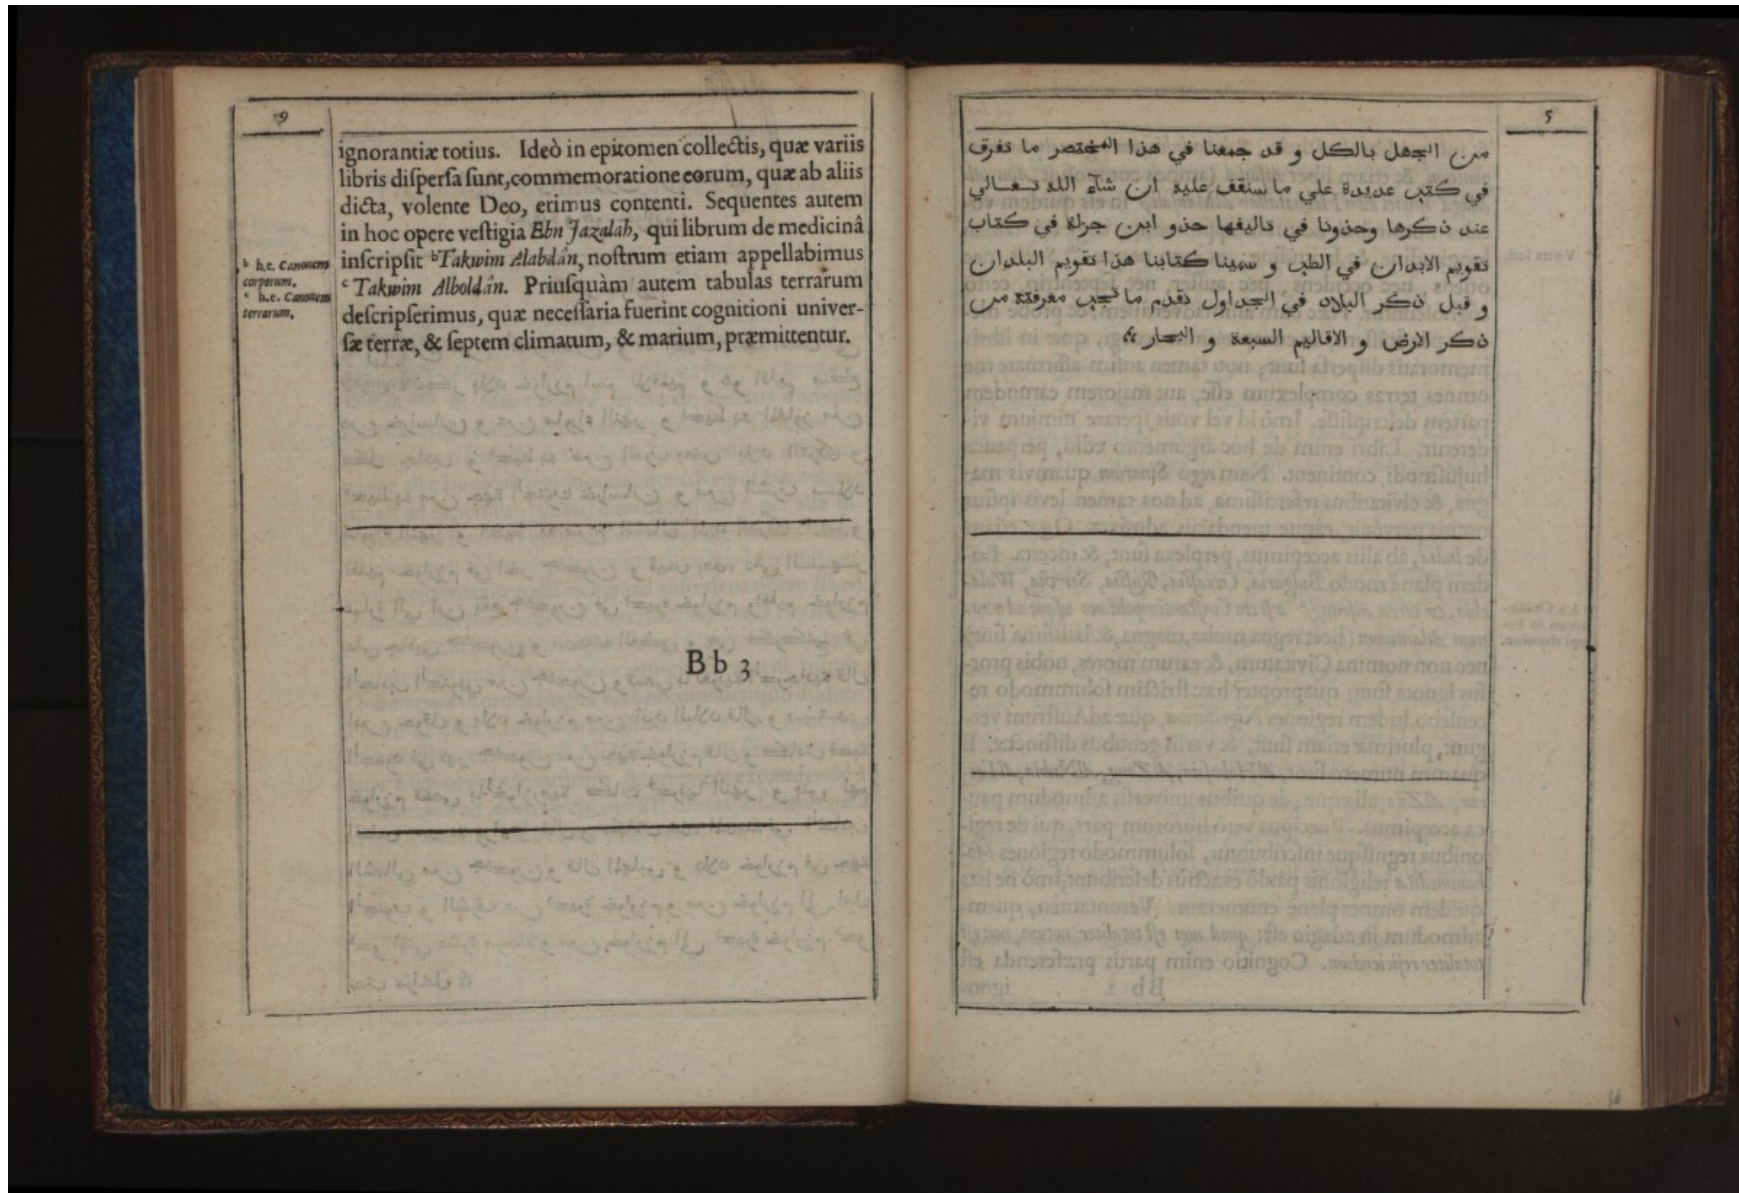 9
ignorantiæ totius. Ideò in epitomen collectis, quæ variis
libris dispersa sunt, commemoratione eorum, quæ ab aliis
dicta, volente Deo, erimus contenti. Sequentes autem
in hoc opere vestigia Ebn Jazalah, qui librum de medicinâ
inscripsit ᵇTakwim Alabdân, nostrum etiam appellabimus
ᶜ Takwim Alboldân. Priusquàm autem tabulas terrarum
descripserimus, quæ necessaria fuerint cognitioni univer-
sæ terræ, & septem climatum, & marium, præmittentur.
ᵇ h.e. Canonem
corporum.
ᶜ h.e. Canonem
terrarum.
Bb 3
5
من الجهل بالكل و قد جمعنا في هذا المختصر ما تفرق
في كتب عديدة علي ما ستقف عليه ان شآء الله تعالي
عند ذكرها وحذونا في تاليفها حذو ابن جزلة في كتاب
تقويم الابدان في الطب و سمينا كتابنا هذا تقويم البلدان
و قبل ذكر البلاد في الجداول نقدم ما تجب معرفته من
ذكر الارض و الاقاليم السبعة و البحار